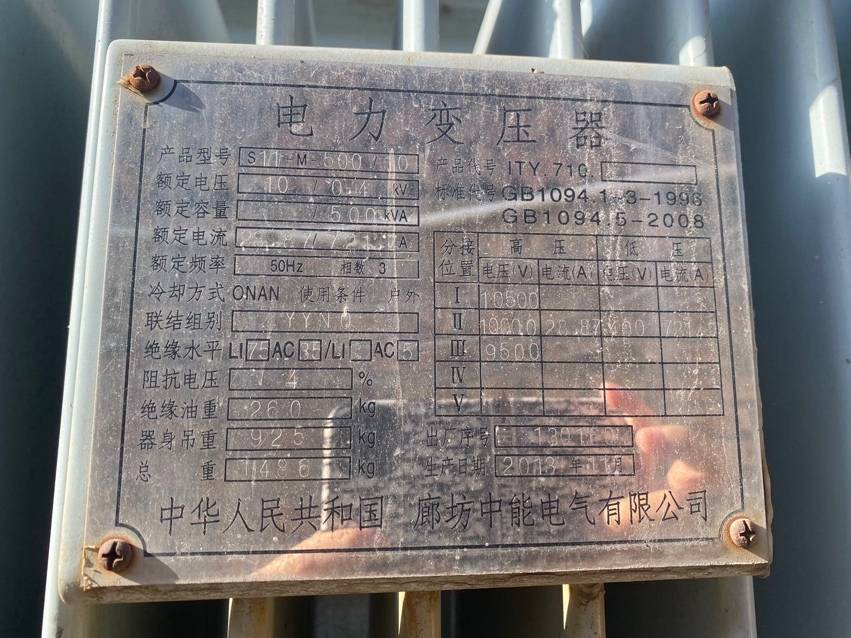 电力变压器
产品型号 S11-M-500/10 产品代号 ITY.710.
额定电压 10/0.4 kV 标准代号 GB1094.1-3-1996
额定容量 /500 kVA GB1094.5-2008
额定电流 A
额定频率 50Hz 相数 3
冷却方式 ONAN 使用条件 户外
联结组别 YYN0
绝缘水平 LI75AC35/LI AC5
阻抗电压 4 %
绝缘油重 260 kg
器身吊重 925 kg
总重 1486 kg
分接位置 高压 低压
电压(V) 电流(A) 电压(V) 电流(A)
I 10500
II 10000 28.87 400
III 9500
IV
V
出厂序号
生产日期 2013年11月
中华人民共和国 廊坊中能电气有限公司